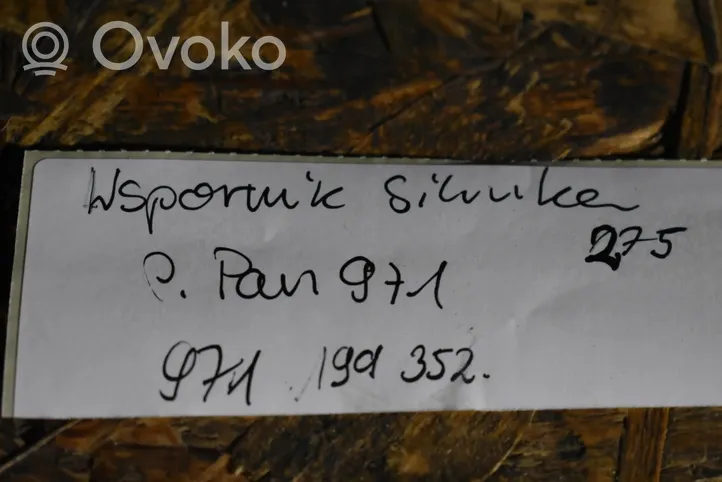 Ovoko
Wspornik Silnika
275
P. Pan 971
971 199 352.